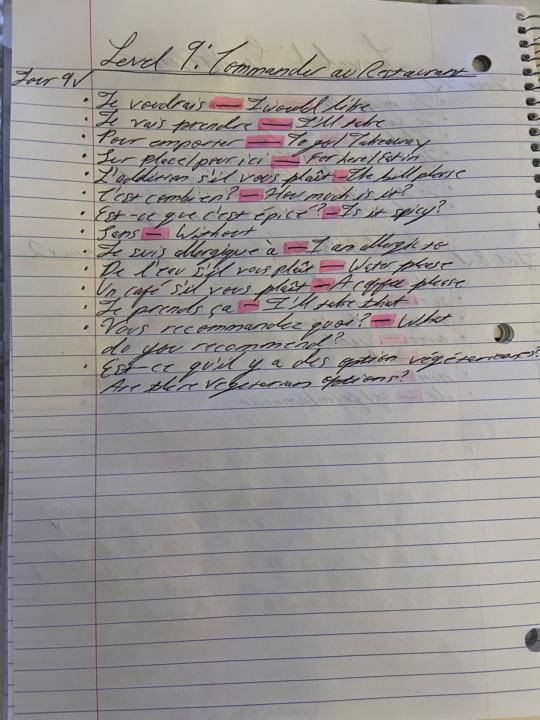 Level 9: Commander au Restaurant
Jour 9 ✓
• Je voudrais — I would like
• Je vais prendre — I'll take
• Pour emporter — To go/Takeaway
• Sur place/pour ici — For here/Eat in
• L'addition s'il vous plaît — The bill please
• C'est combien? — How much is it?
• Est-ce que c'est épicé? — Is it spicy?
• Sans — Without
• Je suis allergique à — I am allergic to
• De l'eau s'il vous plaît — Water please
• Un café s'il vous plaît — A coffee please
• Je prends ça — I'll take that
• Vous recommandez quoi? — What
do you recommend?
• Est-ce qu'il y a des option végétariens?
Are there vegetarian options?